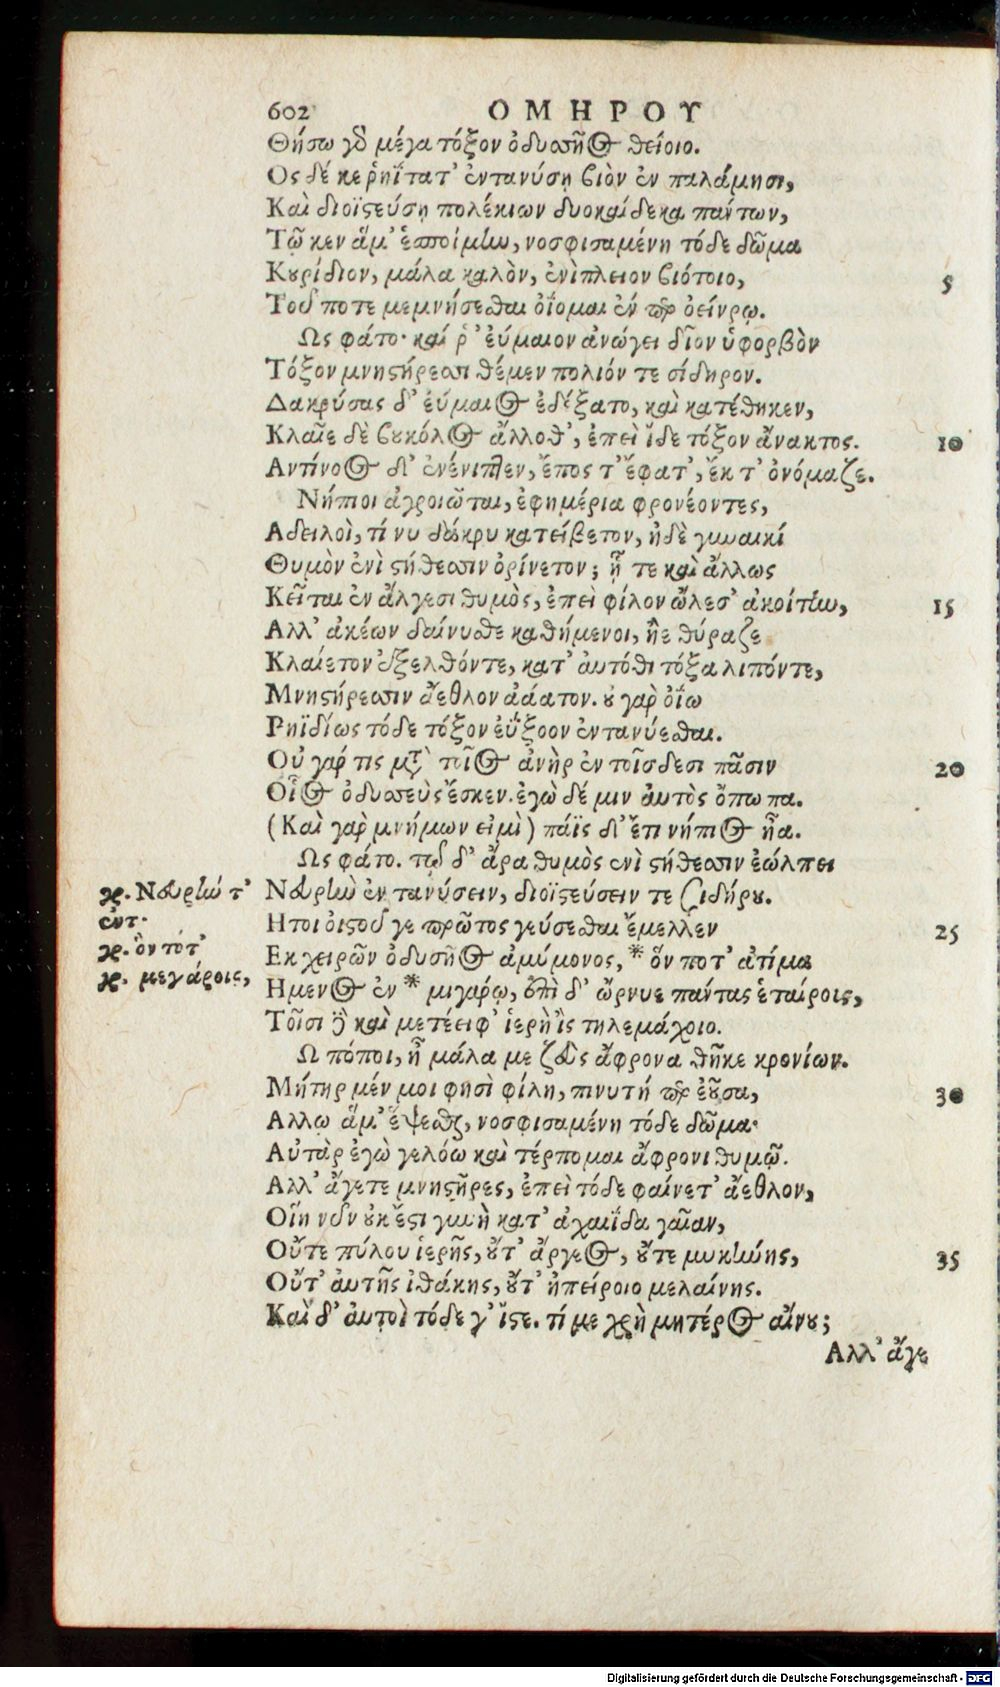 602 ΟΜΗΡΟΥ
Θήσω γὸ μέγα τόξον ὀδυσσῆος θείοιο.
Ος δέ κε ῥηΐτατ' ἐντανύση βιὸν ἐν παλάμησι,
Καὶ διοϊστεύση πολέκιων δυοκαίδεκα πάντων,
Τῷ κεν ἅμ' ἑσποίμην, νοσφισαμένη τόδε δῶμα
Κουρίδιον, μάλα καλὸν, ἐνὶπλειον βιότοιο, 5
Τοῦ ποτε μεμνήσεσθαι ὀΐομαι ἐν περ ὀείνρῳ.
Ως φάτο· καί ῥ' εὔμαιον ἀνώγει δῖον ὑφορβὸν
Τόξον μνηστήρεσσι θέμεν πολιόν τε σίδηρον.
Δακρύσας δ' εὔμαιος ἐδέξατο, καὶ κατέθηκεν,
Κλαῖε δὲ βουκόλος ἄλλοθ', ἐπεὶ ἴδε τόξον ἄνακτος. 10
Αντίνοος δ' ἐνένιπτεν, ἔπος τ' ἔφατ', ἔκ τ' ὀνόμαζε.
Νήπιοι ἀγροιῶται, ἐφημέρια φρονέοντες,
Α δειλοὶ, τί νυ δάκρυ κατείβετον, ἠδὲ γυναικί
Θυμὸν ἐνὶ στήθεσσιν ὀρίνετον; ᾗ τε καὶ ἄλλως
Κεῖται ἐν ἄλγεσι θυμὸς, ἐπεὶ φίλον ὤλεσ' ἀκοίτην, 15
Αλλ' ἀκέων δαίνυσθε καθήμενοι, ἠὲ θύραζε
Κλαίετον ἐξελθόντε, κατ' αὐτόθι τόξα λιπόντε,
Μνηστήρεσσιν ἄεθλον ἀάατον. οὐ γαρ ὀΐω
Ρηϊδίως τόδε τόξον ἐΰξοον ἐντανύεσθαι.
Οὐ γαρ τις μετὰ τοῖος ἀνὴρ ἐν τοῖσδεσι πᾶσιν 20
Οἷος ὀδυσσεὺς ἔσκεν. ἐγὼ δέ μιν αὐτὸς ὄπωπα.
(Καὶ γαρ μνήμων εἰμὶ) πάϊς δ' ἔτι νήπιος ἦα.
Ως φάτο. τῷ δ' ἄρα θυμὸς ἐνὶ στήθεσσιν ἐώλπει
γρ. Νευρήν τ' Νευρὴν ἐν τανύσειν, διοϊστεύσειν τε σιδήρου.
ἐντ. Ητοι ὀιστοῦ γε πρῶτος γεύσεσθαι ἔμελλεν 25
γρ. ὃν τότ' Εκ χειρῶν ὀδυσῆος ἀμύμονος, * ὅν ποτ' ἀτίμα
γρ. μεγάροις, Ημενος ἐν * μιγαρῳ, ἐπὶ δ' ὤρνυε πάντας ἑταίροις,
Τοῖσι δὲ καὶ μετέειφ' ἱερὴ ἲς τηλεμάχοιο.
Ω πόποι, ἦ μάλα με ζεὺς ἄφρονα θῆκε κρονίων.
Μήτηρ μέν μοι φησὶ φίλη, πινυτή περ ἐοῦσα, 30
Αλλῳ ἅμ' ἕψεσθαι, νοσφισαμένη τόδε δῶμα·
Αὐτὰρ ἐγὼ γελόω καὶ τέρπομαι ἄφρονι θυμῷ.
Αλλ' ἄγετε μνηστῆρες, ἐπεὶ τόδε φαίνετ' ἄεθλον,
Οἵη νῦν οὐκ ἔστι γυνὴ κατ' ἀχαιΐδα γαῖαν,
Οὔτε πύλου ἱερῆς, οὔτ' ἄργεος, οὔτε μυκήνης, 35
Οὔτ' αὐτῆς ἰθάκης, οὔτ' ἠπείροιο μελαίνης.
Καὶ δ' αὐτοὶ τόδε γ' ἴστε. τί με χρὴ μητέρος αἴνου;
Αλλ' ἄγε
Digitalisierung gefördert durch die Deutsche Forschungsgemeinschaft - DFG